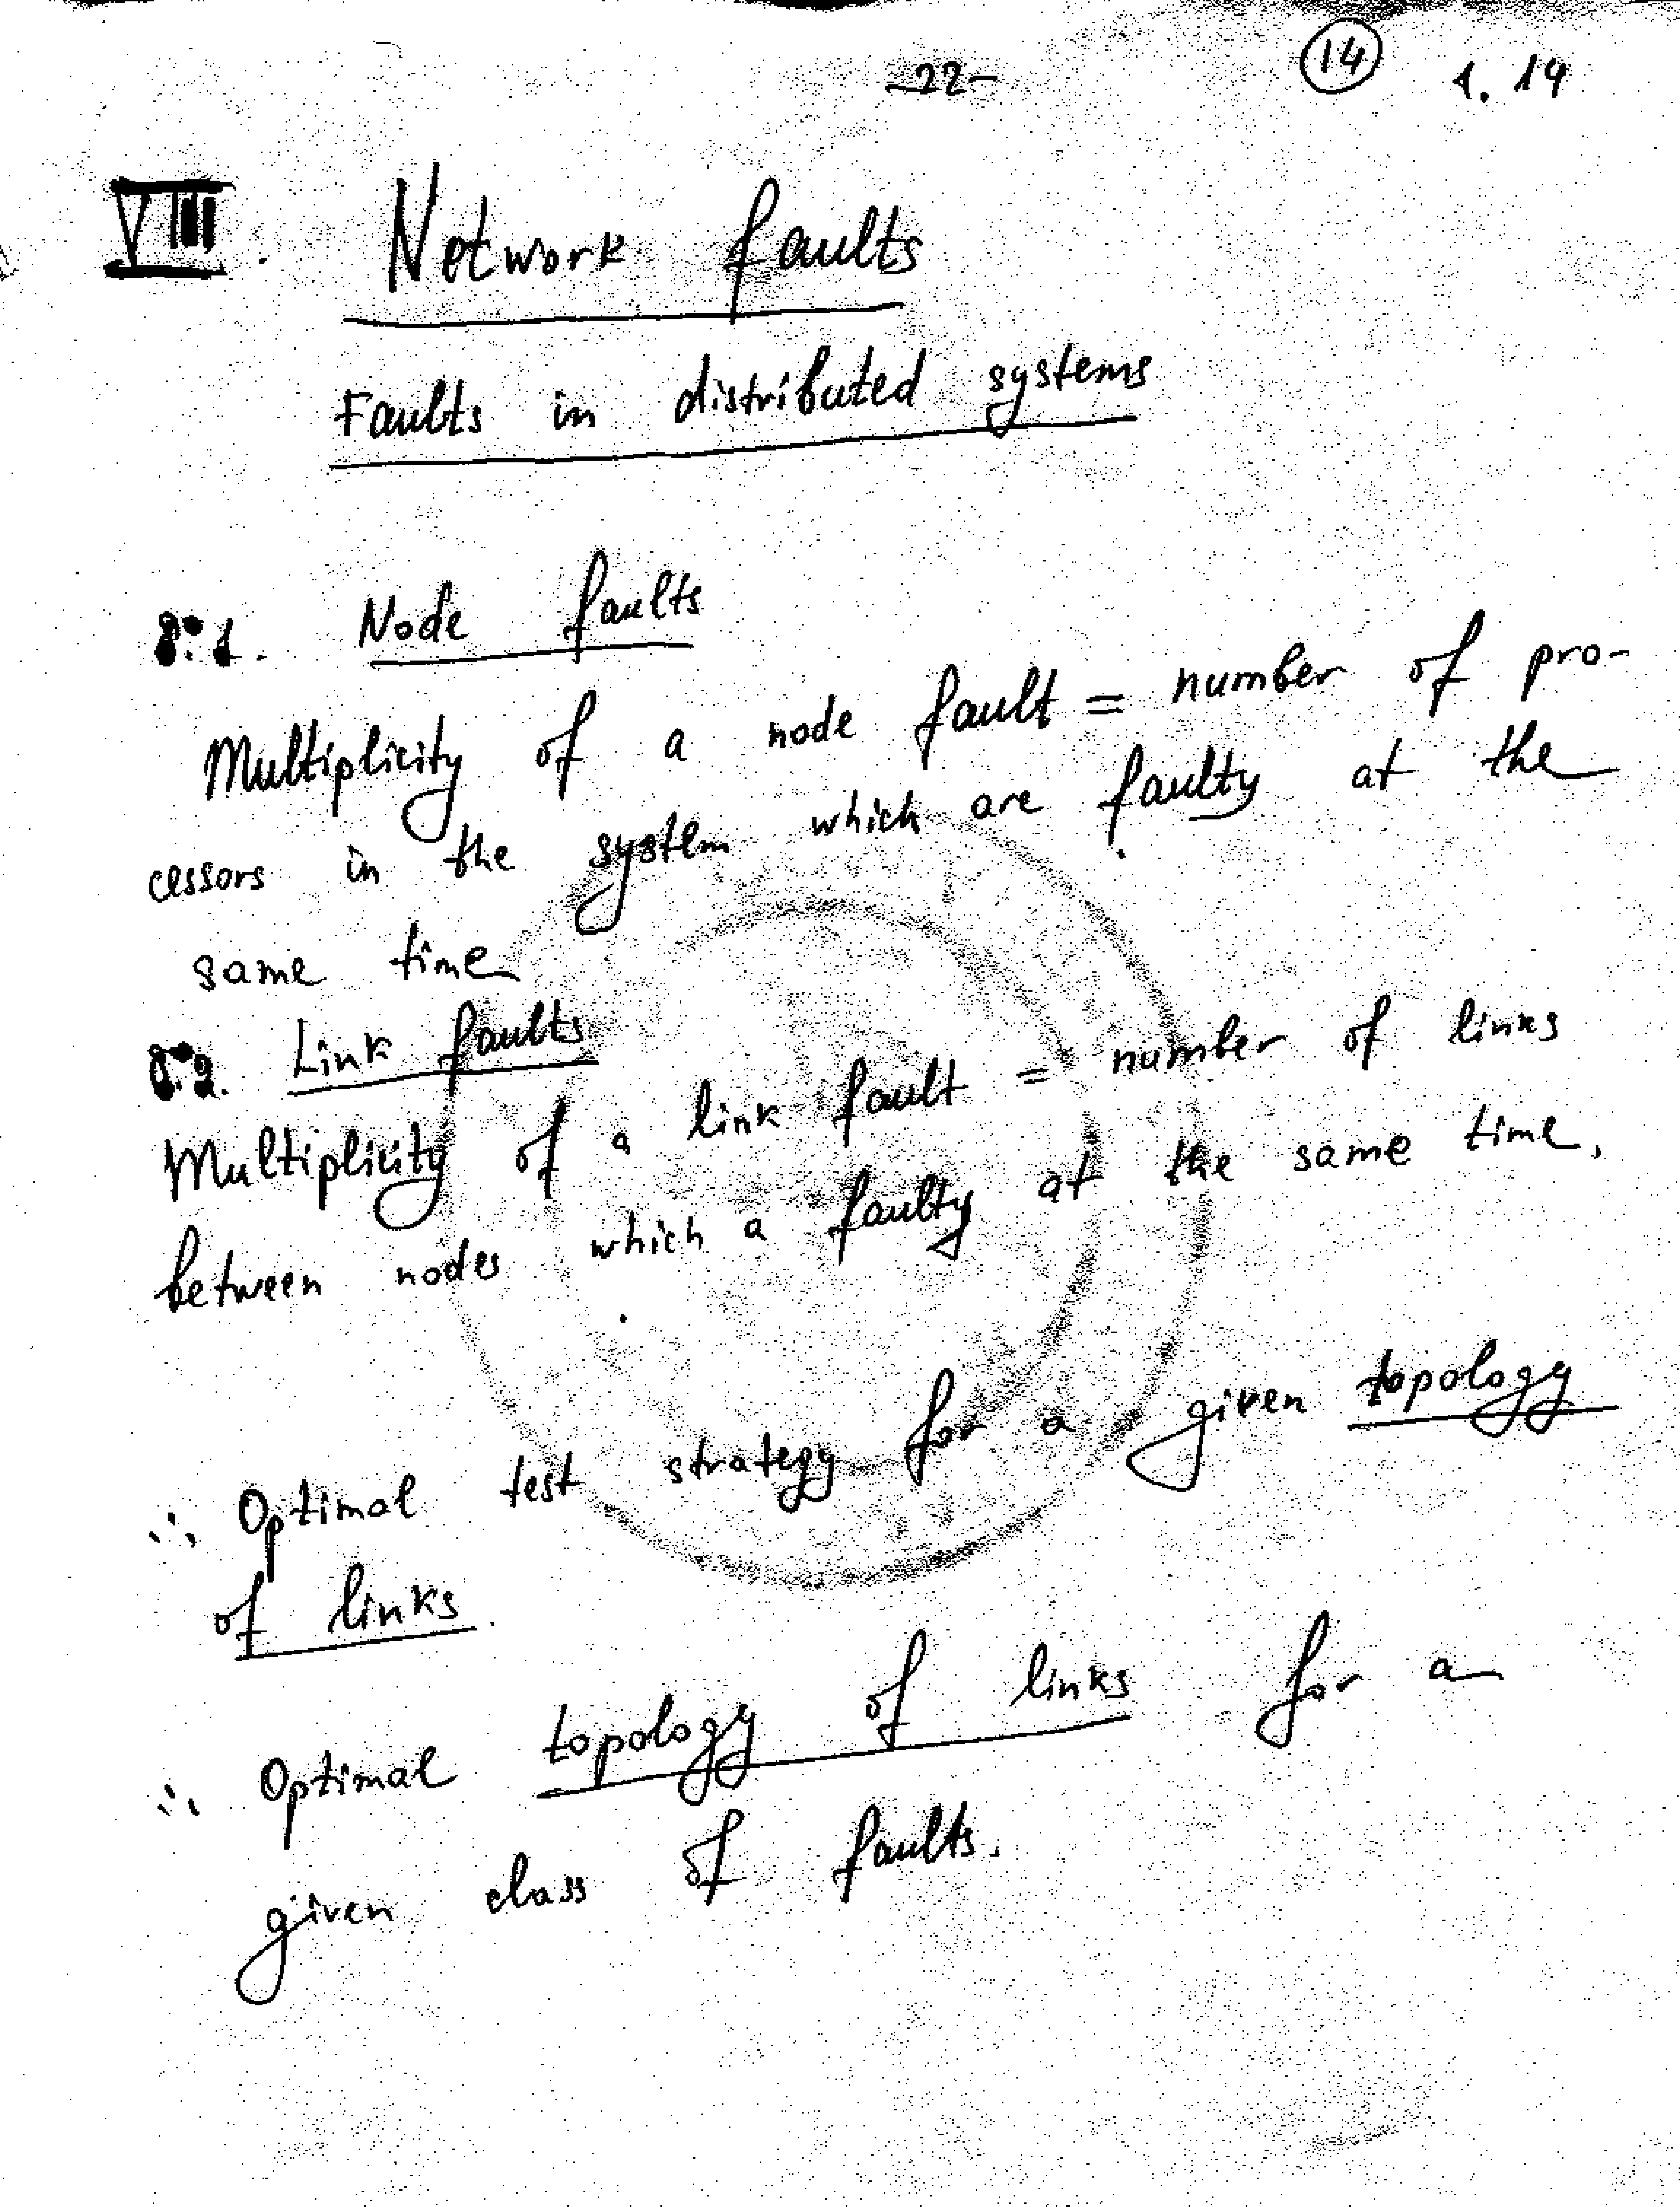 -22-
14 1.14
VIII. Network faults
Faults in distributed systems
8.1. Node faults
Multiplicity of a node fault = number of pro-
cessors in the system which are faulty at the
same time
8.2. Link faults
Multiplicity of a link fault = number of links
between nodes which a faulty at the same time.
∴ Optimal test strategy for a given topology
of links.
∴ Optimal topology of links for a
given class of faults.